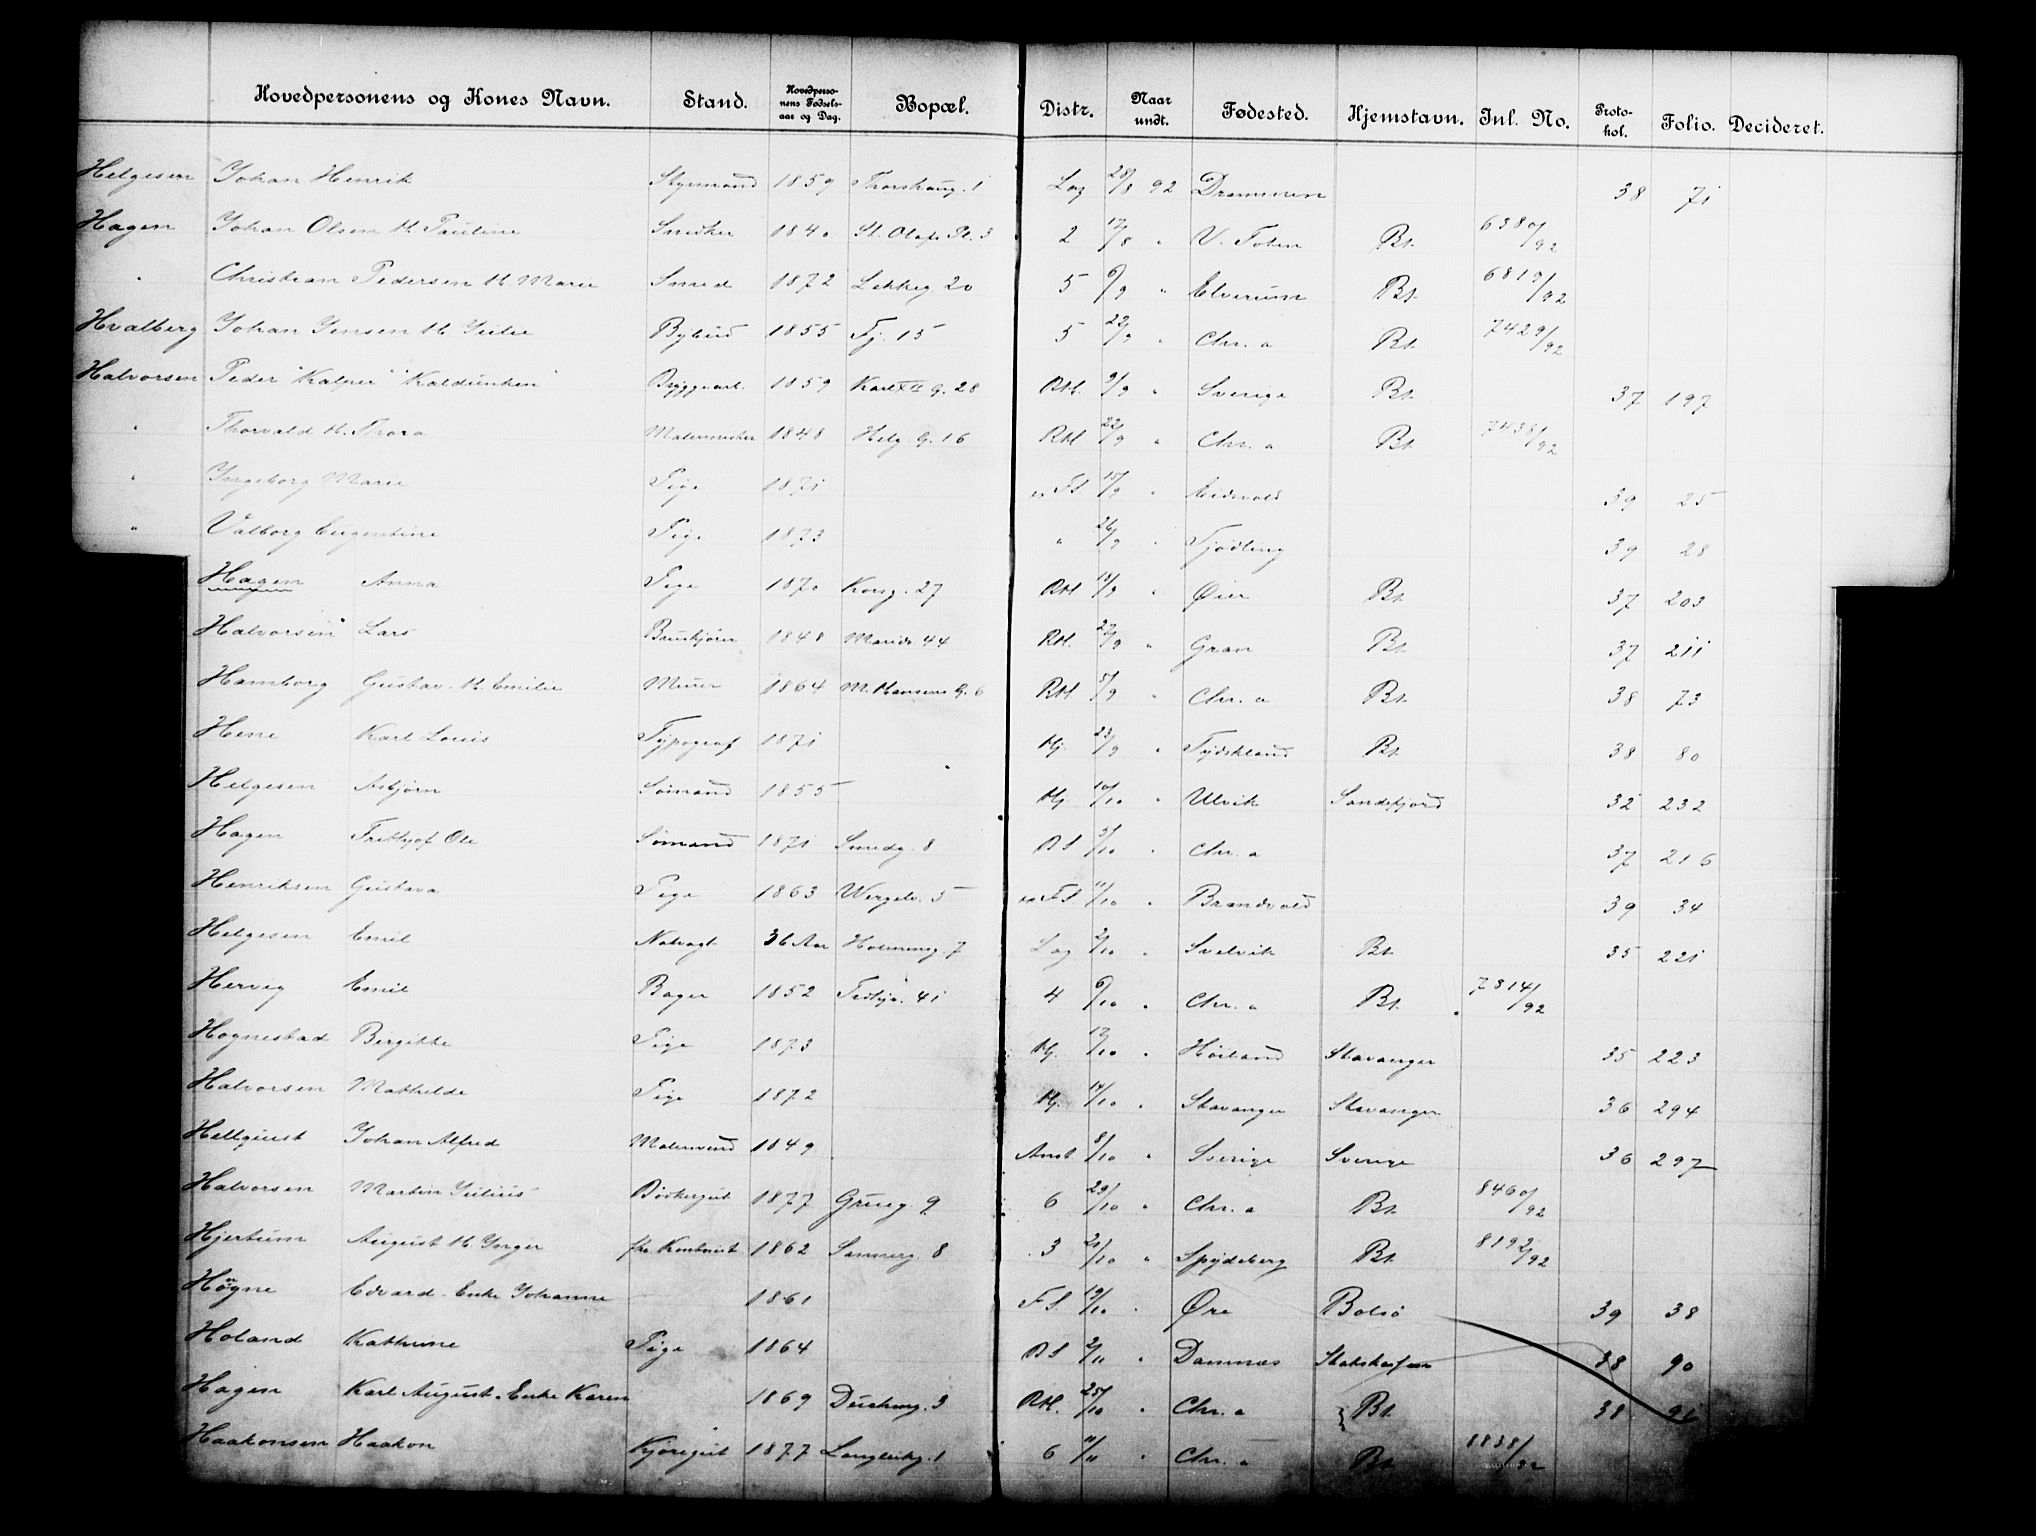 Hovedpersonens og Kones Navn. Stand. Hovedperso-nens Fødsels-aar og Dag. Bopæl. Distr. Naar undt. Fødested. Hjemstavn. Inl. No. Proto-kol. Folio. Decideret.
Helgesen Johan Henrik Styrmand 1859 Thorshaug. 1 Lag 28/8 92 Drammen 38 71
Hagen Johan Olsen M. Pauline Snedker 1840 St. Olafs Pl. 3 2 17/8 " V. Toten Bt. 6380/92
" Christian Pedersen M. Marie Smed 1872 Lakkeg. 20 5 6/9 " Elverum Bt. 6819/92
Hvalberg Johan Jensen M. Julie Bybud 1855 Fj. 15 5 22/9 " Chr. a Bt. 7429/92
Halvorsen Peder "Kalper" "Kaldunken" Bryggearb. 1859 Karl XII G. 28 RM. 9/9 " Sverige Bt. 37 197
" Thorvald M. Thora Malermester 1848 Helg. G. 16 RM 22/9 " Chr. a Bt 7438/92
" Ingeborg Marie Pige 1871 FS 15/9 " Eidsvold 39 25
" Valborg Eugentine Pige 1873 " 26/9 " Tjødling 39 28
Hagen Anna Pige 1870 Korsg. 27 RM 19/9 " Øier Bt. 37 203
Halvorsen Lars 1848 Marids. 44 RM. 27/9 " Gran Bt. 37 211
Hamborg Gustav. M. Emilie Murer 1864 M. Hansens G. 6 RM. 5/9 " Chr. a Bt. 38 73
Hene Karl Louis Typograf 1871 Hj. 23/9 " Tydskland Bt. 38 80
Helgesen Asbjørn Sømand 1855 Hj. 10/10 " Ulvik Sandefjord 32 232
Hagen Frithjof Ole Sømand 1871 Smedg. 8 BS 5/10 " Chr. a 37 216
Henriksen Gustava Pige 1863 Wergelv. 5 FS 11/10 " Brandvold 39 34
Helgesen Emil Natvagt 36 Aar Holmensg. 7 Lag 2/10 " Svelvik Bt. 35 221
Hervig Emil Bager 1852 41 4 6/10 " Chr. a Bt. 7814/92
Hognestad Bergitte Pige 1873 Hj. 17/10 " Høiland Stavanger 35 223
Halvorsen Mathilde Pige 1872 Hj. 14/10 " Stavanger Stavanger 36 294
Hellquist Johan Alfred Malersvend 1849 Anst 8/10 " Sverige Sverige 36 297
Halvorsen Martin Julius Bødkergut 1877 Grueg. 9 6 29/10 " Chr. a Bt. 8460/92
Hjertum August M. Inger fhv. Kontorist 1862 Sannerg. 8 3 21/10 " Spydeberg Bt. 8192/92
Høgne Edvard. Enke Johanne 1861 FS. 19/10 " Øre Bolsø 39 38
Holand Kathrine Pige 1864 BS 2/11 " Damnæs 38 90
Hagen Karl August. Enke Karen 1869 3 RM. 25/10 " Chr. a Bt. 38 91
Haakonsen Haakon Kjøregut 1877 Langleikg. 1 6 11/11 " Chr. a Bt. 8838/92